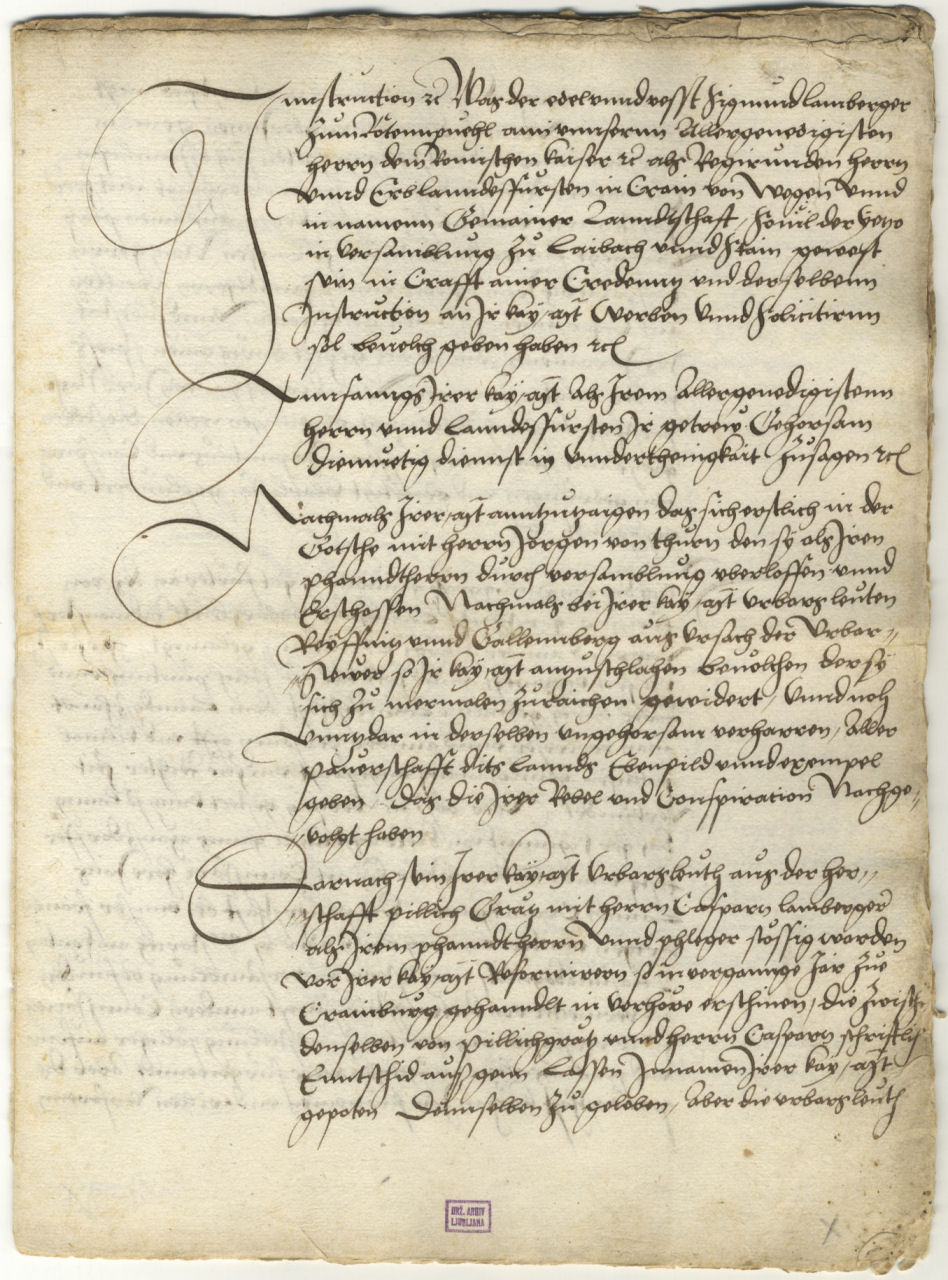 Innstruction rc Was der edel unnd vesst Sigmund lamberger
zum Rotennpuehl ann unnserm Allergenedigisten
herrn dem Romischen kaiser rc als Regirunden herrn
unnd Erblanndsfursten in Crain von wegen unnd
in namenn Gemainer Lanndtschaft, souil der yetzo
in versamblung zu Laibach unnd Stain gewest
sein in Crafft ainer Credenntz und derselbenn
Instruction an Ir kay: Mt werben unnd Solicitirnn
sol bevelch geben haben rc
Annfanngs Irer kay: Mt Als Irem Allergenedigistenn
herrn unnd lanndsfursten Ir getrew Gehorsam
diemuetig diennst in unnderthenigkait zusagen rc
Nachmals Irer Mt anntzutzaigen das sich erstlich in der
Gotsche mit herrn Jorgen von thurn den sy als Iren
phanndtherrn durch versamblung uberloffen unnd
Erschossen Nachmals bei Irer kay: Mt urbarsleuten
Reyffnitz unnd Gallennberg aus ursach der Urbar-
Stewer so Ir kay: Mt antzuschlahen bevolhen der sy
sich zu mermalen zuraichen gewidert, unnd noch
unntzdar in derselben ungehorsam verharren, Aller
paurschafft dits lannds Ebenpild unnd exempel
geben das die Irer Rebel und Conspiration Nachge-
volgt haben
Darnach sein Irer kay: Mt urbarsleuth aus der her-
schafft pillich Grätz mit herrn Casparn lamberger
als Irem phanndtherrn unnd phleger stössig worden
vor Irer kay: Mt Reformirern so in vergannge Jar zue
Crainburg gehanndlt in verhöre erschinen, die zwischn
denselben von pillichgrätz unnd herrn Casparn schriftlich
Enntschid auss geen Lassen Innamen Irer kay: Mt
gepoten Dennselben zu geloben, Aber die urbarsleuth
DRŽ. ARHIV
LJUBLJANA